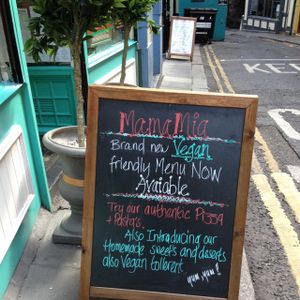 MamaMia
Brand new Vegan
friendly Menu NOW
Avaiable
Try our authentic Pizza
+ Pasta's
Also Introducing our
Homemade sweets and deserts
also Vegan tollerent
yum, yum!
KE